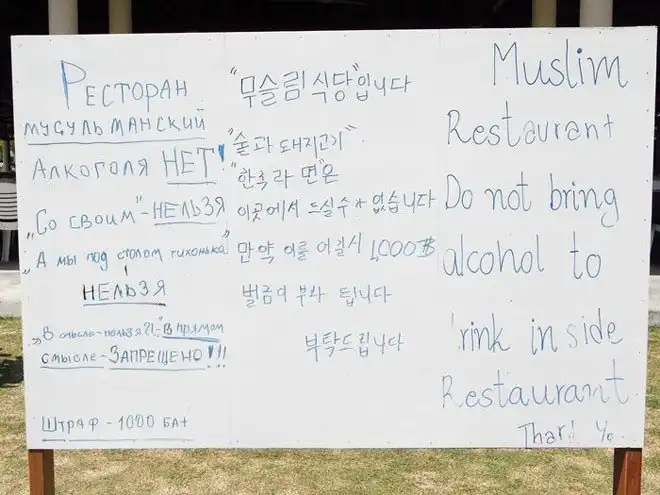 Ресторан
мусульманский
Алкоголя НЕТ!
„Со своим" - НЕЛЬЗЯ
„А мы под столом тихонько"
НЕЛЬЗЯ
„В смысле-нельзя?!" - В прямом
смысле - ЗАПРЕЩЕНО!!!
ШТРАФ - 1000 БАt
"무슬림 식당"입니다
"술과 돼지고기"
"한국라면"은
이곳에서 드실수가 없습니다
만약 이를 어길시 1,000฿
벌금이 부과 됩니다
부탁드립니다
Muslim
Restaurant
Do not bring
alcohol to
rink inside
Restaurant